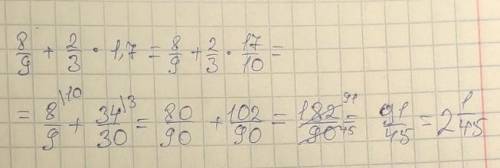 8/9 + 2/3 · 1,7 = 8/9 + 2/3 · 17/10 =
= 8/9 \10 + 34/30 \3 = 80/90 + 102/90 = 182/90 91/45 = 91/45 = 2 1/45